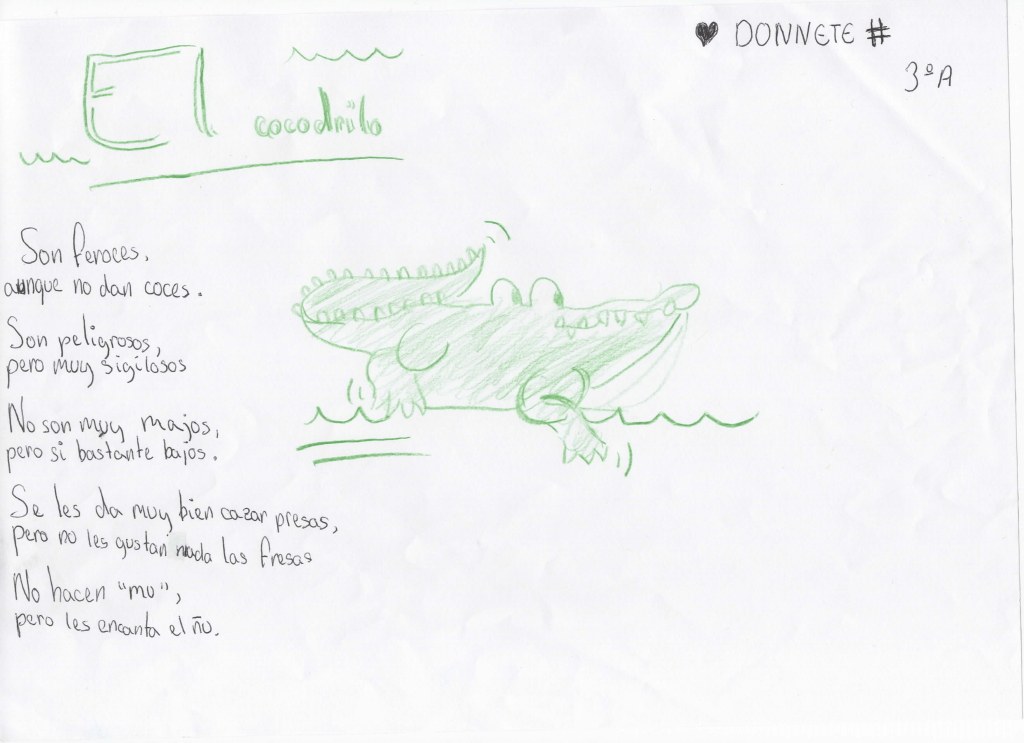 ♥ DONNETE #
3º A
El
cocodrilo
Son feroces,
aunque no dan coces.
Son peligrosos,
pero muy sigilosos
No son muy majos,
pero si bastante bajos.
Se les da muy bien cazar presas,
pero no les gustan nada las fresas
No hacen "mu",
pero les encanta el ñu.